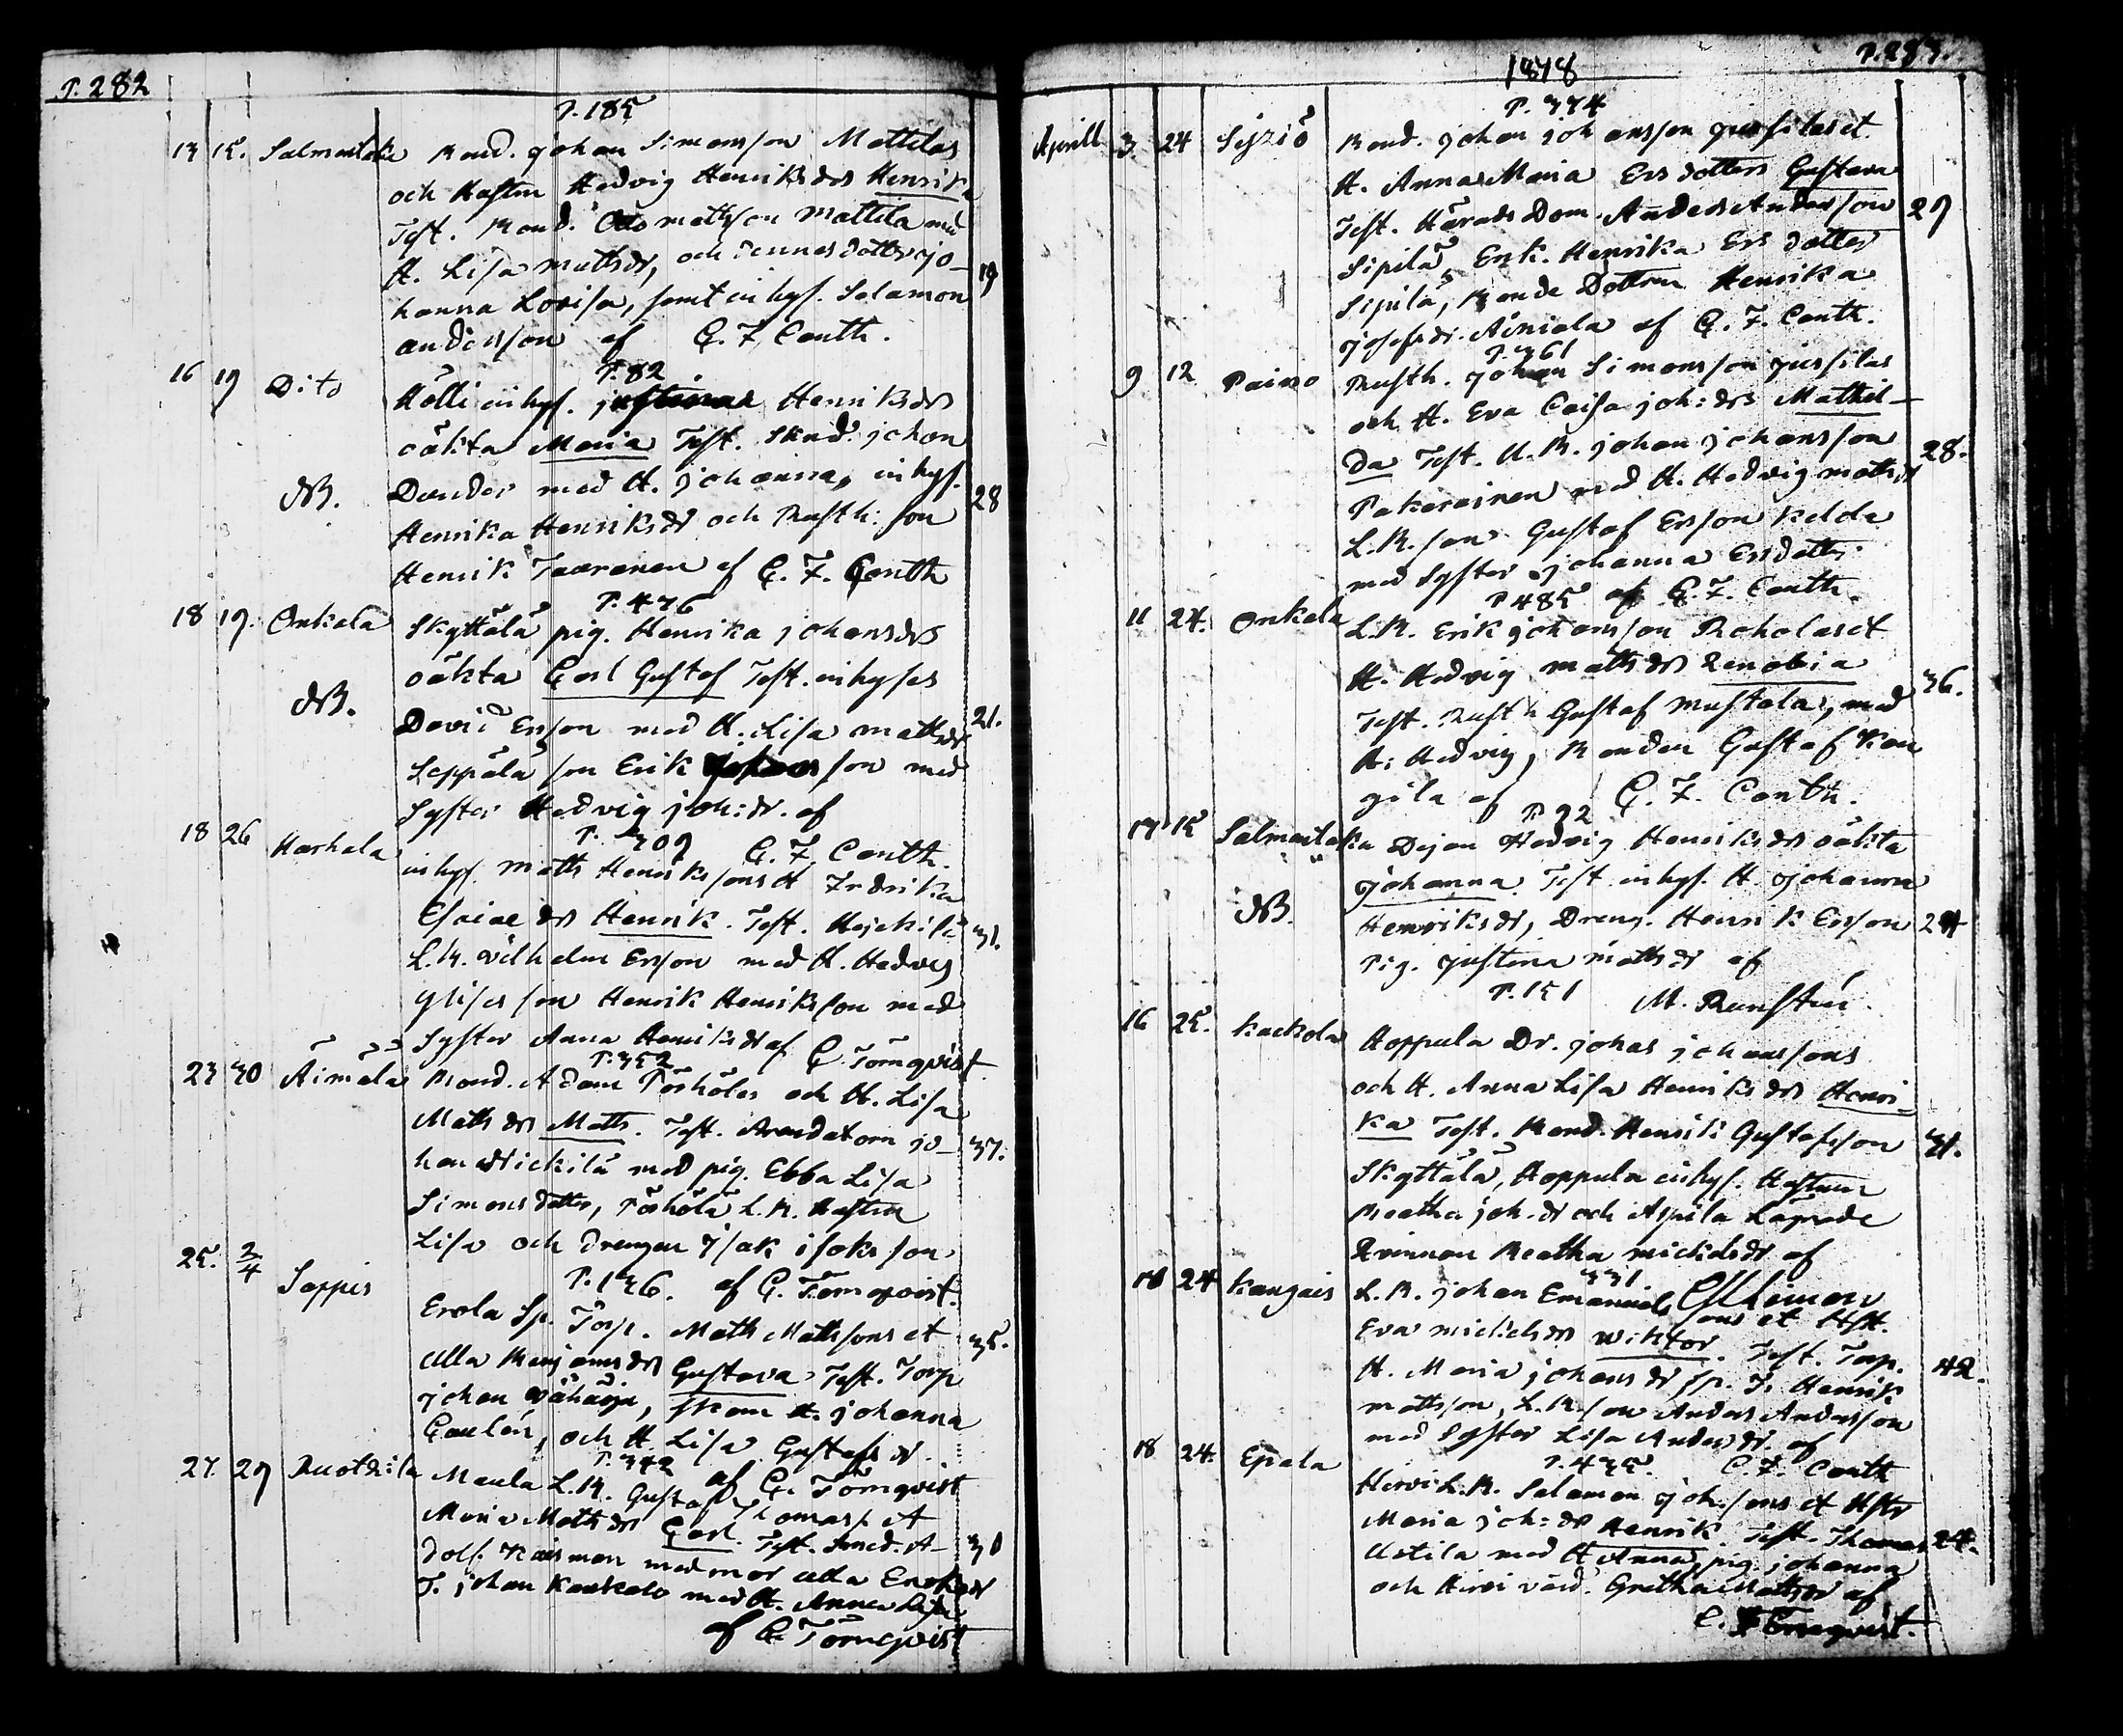 P. 282
P. 185
13 15. Salmentaka Bond. Johan Simonsson Mattilas
och Hustru Hedvig Henriksdr Henrika
Test. Bond. Otto Mattsson Mattila med
H. Lisa Mattsdr, och dennes dotter Jo-
hanna Lovisa, samt inhys. Salamon 19
andersson af C. F. Canth.
P. 82
16 19 Dito Hölli inhys. Henriksdrs
oäkta Maria Test. Skrd. Johan
NB. Dander med H. Johanna, inhys. 28
Henrika Henriksdr och Rusth: son
Henrik Taaranen af C. F. Canth
P. 476
18 19. Onkala Skyttälä pig. Henrika Johansdrs
oäkta Carl Gustaf Test. inhyses
NB. David Ersson med H. Lisa Mattsdr 21.
Leppälä son Erik son med
Syster Hedvig Joh:dr. af
P. 309 C. F. Canth.
18 26 Harhala inhys. Matts Henrikssons H Fredrika
Esaiae dr Henrik. Test. 31.
L.B. Vilhelm Ersson med H. Hedvig
son Henrik Henriksson med
Syster Anna Henriksdr af C. Törnqvist
P. 352
23 30 Äimälä Bond. Adam Pörhölas och H. Lisa
Mattsdrs Matts. Test. Arendatorn Jo- 37.
han Nickilä med pig. Ebba Lisa
Simonsdotter, Pörhölä L.B. Hustru
Lisa och drengen Isak Isaksson
P. 136. af C. Törnqvist.
25. 3/4 Sappis Erola Sp. Torp. Matts Mattssons et
Ulla Benjamsdrs Gustava Test. Torp 35.
Johan Vähäoja, H. Johanna
Caulén, och H. Lisa Gustafsdr.
P. 342 af C. Törnqvist
27. 29 Ruothila Maula L.B. Gustaf Thomass. H
Maria Mattsdrs Carl. Test. Smed. A- 30
dolf. Kaisman med mor Ulla Enoksdr
T. Johan Kaukalo med H. Anna Lisa
af C. Törnqvist
1878 P. 283.
P. 374
Aprill 3. 24 Syriö Bond. Johan Johansson Jussilas et
H. Anna Maria Ersdotters Gustava
Test. Härads Dom. Anders Andersson 29
Sipilä, Enk. Henrika Ersdotter
Sipilä, Bonde Dottren Henrika
Josefsdr. Äiniälä af C. F. Canth.
P. 361
9 12 Paino Rusth. Johan Simonsson Jussilas
och H. Eva Caisa Joh:drs Mathil-
da Test. U.B. Johan Johansson 28.
Pakarainen med H. Hedvig Mattsdr
L.B. son Gustaf Ersson Kelda
med Syster Johanna Ersdotter
P. 485 af C. F. Canth.
11 24. Onkala L.B. Erik Johansson Rekolas et
H. Hedvig Mattsdrs Zenobia
Test. Rusth Gustaf Mustala, med 36.
H. Hedvig, Bonden Gustaf Kan
gila af C. F. Canth.
P. 92
13 15 Salmentaka Dejan Hedvig Henriksdrs oäkta
Johanna Test. inhys. H. Johanna
NB. Henriksdr, Dreng. Henrik Ersson 24
Pig. Justina Mattsdr af
P. 151 M. Runstén.
16 25. Kaekola Hoppula Dr. Johas Johanssons
och H. Anna Lisa Henriksdrs Henri-
ka Test. Bond. Henrik Gustafsson 31.
Skyttälä, Hoppula inhys. Hustrun
Beatha Joh.dr och Aspila Lagrade
Qvinnan Beatha Michelsdr af
331
18 24 Kangais L.B. Johan Emanuels sons et Hst.
Eva Michelsdrs Wiktor. Test. Torp.
H. Maria Johansdr Sp. T. Henrik 42.
Mattsson, L.B. son Anders Andersson
med Syster Lisa Andersdr. af
P. 435. C. F. Canth
18 24. Epala Hirvi L.B. Salamon Joh.sons et Hstr
Maria Joh:drs Henrik. Test. Thomas 24.
Uotila med H Anna, pig. Johanna
och Hirvi värd. Gretha Mattsdr af
C. Törnqvist.